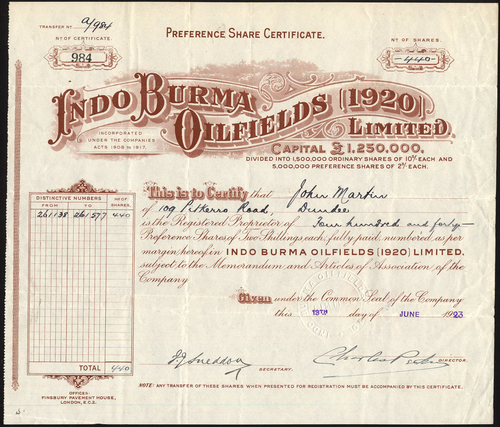 PREFERENCE SHARE CERTIFICATE.
TRANSFER No a/984
No OF CERTIFICATE.
984
No OF SHARES.
-440-
INDO BURMA
OILFIELDS (1920)
LIMITED.
INCORPORATED
UNDER THE COMPANIES
ACTS 1908 TO 1917.
CAPITAL £1,250,000.
DIVIDED INTO 1,500,000 ORDINARY SHARES OF 10/- EACH AND
5,000,000 PREFERENCE SHARES OF 2/- EACH.
DISTINCTIVE NUMBERS
No OF SHARES.
FROM TO
261138 261577 440
TOTAL 440
This is to Certify that John Martin
of 109 Pitkerro Road, Dundee
is the Registered Proprietor of Four hundred and forty-
Preference Shares of Two Shillings each, fully paid, numbered as per
margin hereof, in INDO BURMA OILFIELDS (1920) LIMITED.
subject to the Memorandum and Articles of Association of the
Company
Given under the Common Seal of the Company
this 19TH day of JUNE 1923
DIRECTOR.
SECRETARY.
NOTE: ANY TRANSFER OF THESE SHARES WHEN PRESENTED FOR REGISTRATION MUST BE ACCOMPANIED BY THIS CERTIFICATE.
OFFICES:
FINSBURY PAVEMENT HOUSE,
LONDON, E.C.2.